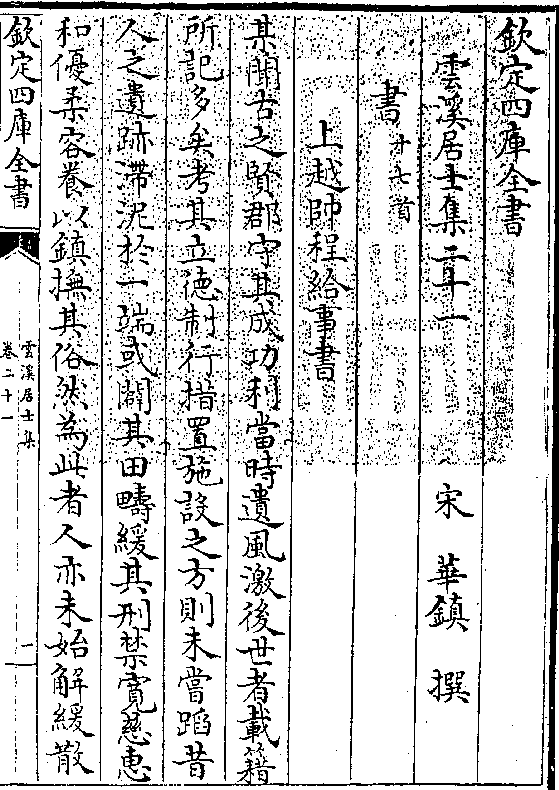 欽定四庫全書
雲溪居士集二十一
宋　華鎮　撰
書廿七首
上越帥程給事書
某聞古之賢郡守其成功利當時遺風激後世者載籍
所記多矣考其立德制行措置施設之方則未嘗蹈昔
人之遺跡滯泥於一端或闢其田疇緩其刑禁寛慈惠
和優柔容養以鎮撫其俗然為此者人亦未始解緩散
欽定四庫全書
雲溪居士集
卷二十一
一